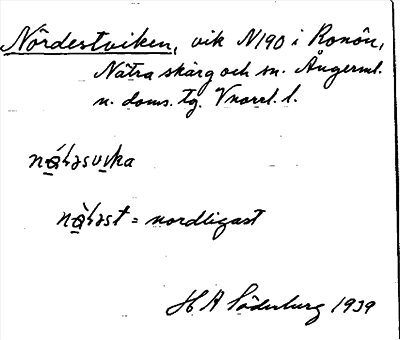 Nördestviken, vik N190 i Ronön,
Nätra skärg och sn. Ångerml.
n. doms. tg. Vnorrl. l.
= nordligast
H A Söderburg 1939